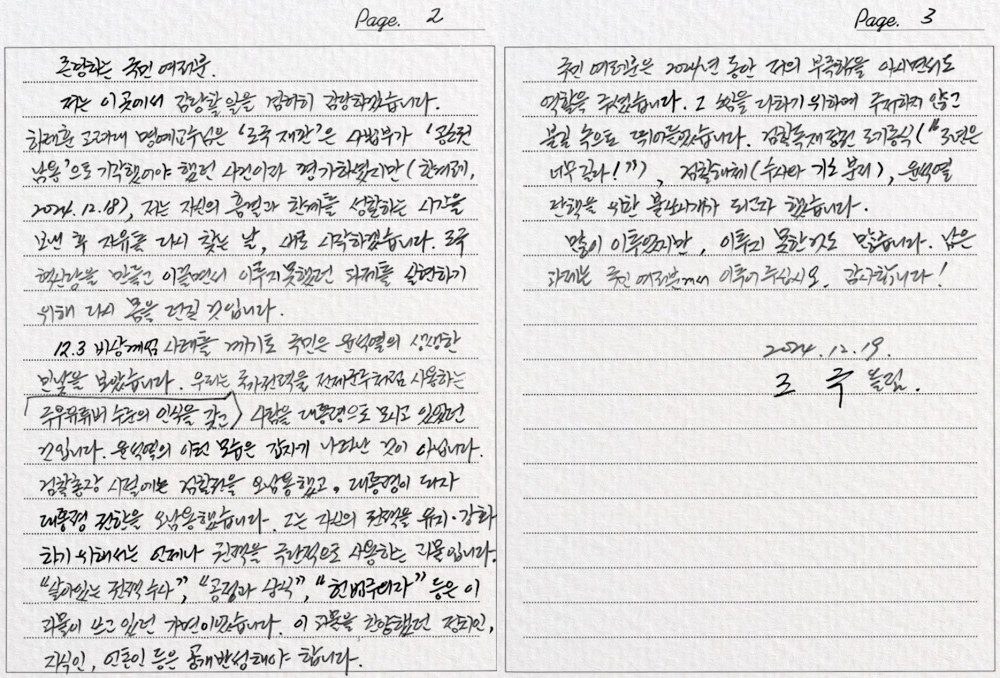 Page. 2
존경하는 국민 여러분.
저는 이곳에서 감당할 일을 겸허히 감당하겠습니다.
하태훈 고려대 명예교수님은 '조국 재판'은 사법부가 '공소권
남용'으로 기각했어야 했던 사건이라 평가하셨지만 (한겨레,
2024.12.18), 저는 자신의 흠결과 한계를 성찰하는 시간을
보낸 후 자유를 다시 찾는 날, 새로 시작하겠습니다. 조국
혁신당을 만들고 이끌면서 이루지 못했던 과제를 실현하기
위해 다시 몸을 던질 것입니다.
12.3 비상계엄 사태를 계기로 국민은 윤석열의 생생한
민낯을 보았습니다. 우리는 국가권력을 전제군주처럼 사용하는
극우유튜버 수준의 인식을 갖고 사람을 대통령으로 모시고 있었던
것입니다. 윤석열의 이런 모습은 갑자기 나타난 것이 아닙니다.
검찰총장 시절에는 검찰권을 오남용했고, 대통령이 되자
대통령 권한을 오남용했습니다. 그는 자신의 권력을 유지·강화
하기 위해서는 언제나 권력을 극단적으로 사용하는 괴물입니다.
"살아있는 권력 수사", "공정과 상식", "헌법주의자" 등은 이
괴물이 쓰고 있던 가면이었습니다. 이 괴물을 찬양했던 정치인,
지식인, 언론인 등은 공개반성해야 합니다.
Page. 3
국민 여러분은 2024년 동안 저의 부족함을 아시면서도
역할을 주셨습니다. 그 역할을 다하기 위하여 주저하지 않고
불길 속으로 뛰어들었습니다. 검찰독재정권 조기종식("3년은
너무 길다!"), 검찰해체(수사와 기소 분리), 윤석열
탄핵을 위한 불쏘시개가 되고자 했습니다.
많이 이루었지만, 이루지 못한 것도 많습니다. 남은
과제는 국민 여러분께서 이루어 주십시오. 감사합니다!
2024.12.19.
조 국 올림.